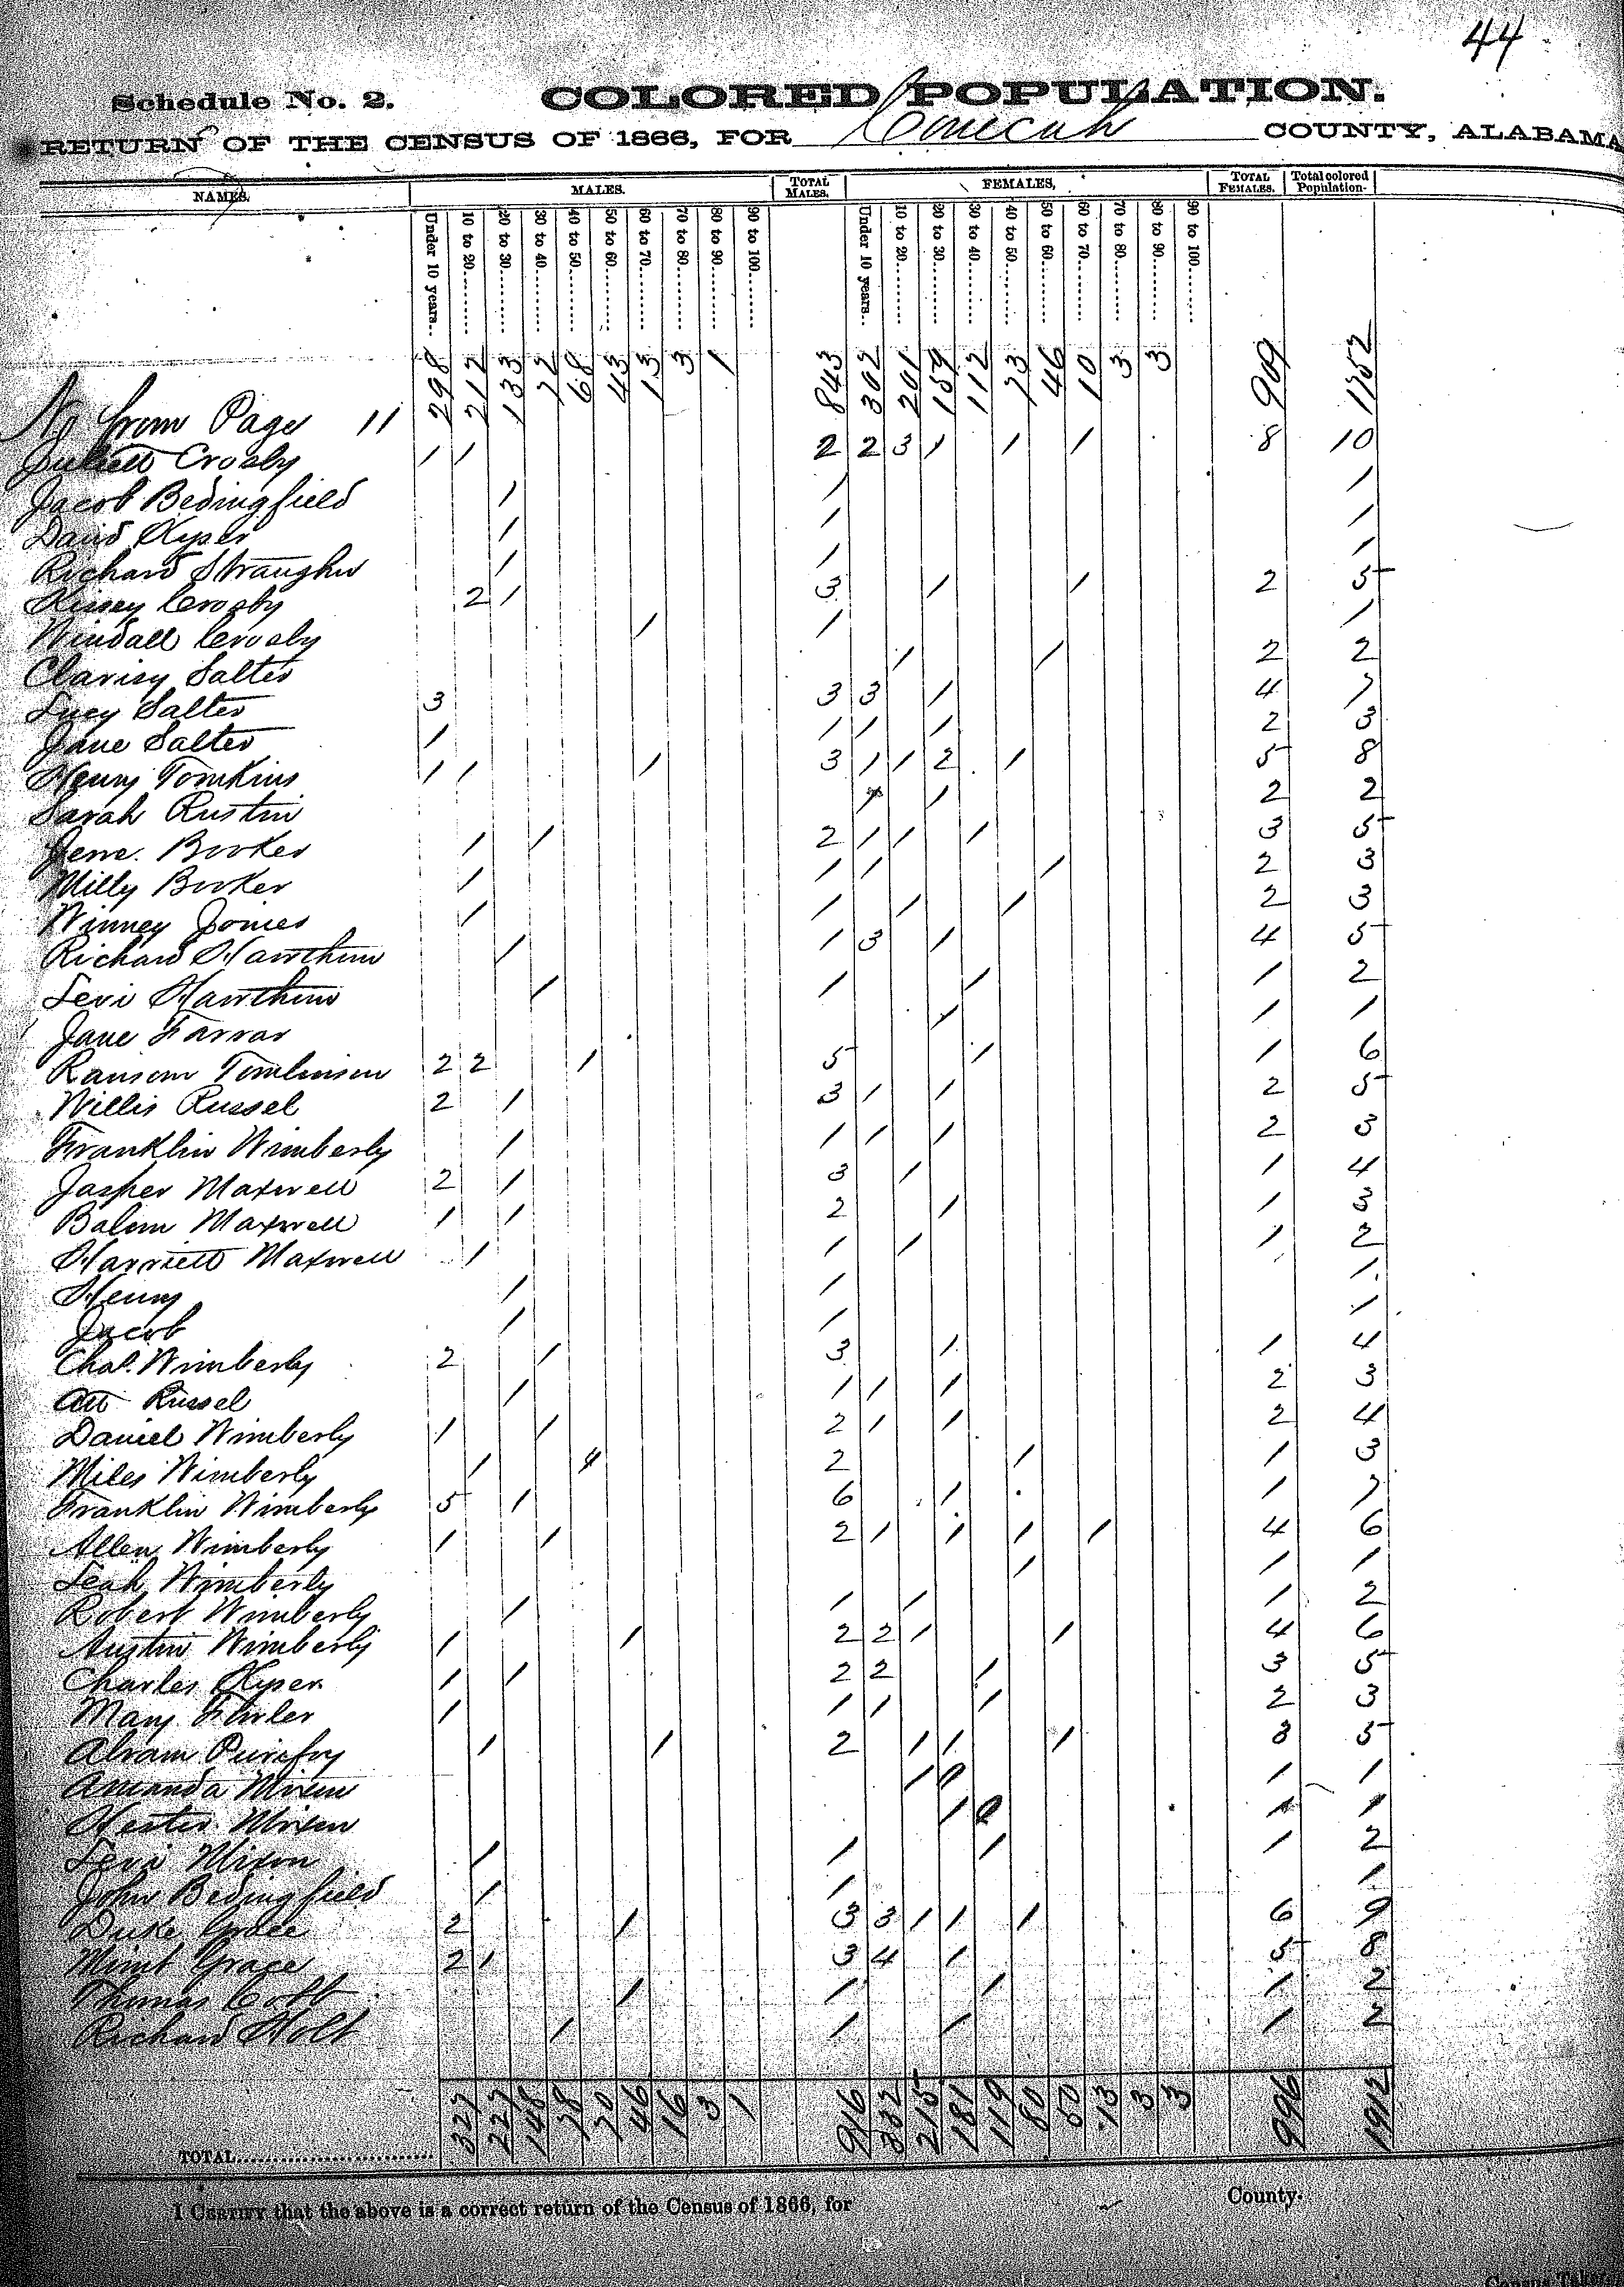 44
Schedule No. 2. COLORED POPULATION.
RETURN OF THE CENSUS OF 1866, FOR Conecuh COUNTY, ALABAMA
NAMES. MALES. TOTAL MALES. FEMALES, TOTAL FEMALES. Total colored Population.
Under 10 years.. 10 to 20........ 20 to 30........ 30 to 40........ 40 to 50........ 50 to 60........ 60 to 70........ 70 to 80........ 80 to 90........ 90 to 100........ Under 10 years.. 10 to 20........ 20 to 30........ 30 to 40........ 40 to 50........ 50 to 60........ 60 to 70........ 70 to 80........ 80 to 90........ 90 to 100........
No from Page 11 298 212 133 72 68 43 13 3 1 843 302 201 159 112 73 46 10 3 3 909 1752
Juliett Crosby 1 1 2 2 3 1 1 1 8 10
Jacob Bedingfield 1 1 1
David Kyser 1 1 1
Richard Straughn 1 1 1
Kissey Crosby 2 1 3 1 1 2 5
Windall Crosby 1 1 1
Clarisy Salter 1 1 2 2
Lucy Salter 3 3 3 1 4 7
Jane Salter 1 1 1 1 2 3
Henry Tomkins 1 1 1 3 1 1 2 1 5 8
Sarah Rustin 1 1 2 2
Jerre. Booker 1 1 2 1 1 1 3 5
Milly Booker 1 1 1 1 2 3
Winney Jones 1 1 1 1 2 3
Richard Hawthorn 1 1 3 1 4 5
Levi Hawthorn 1 1 1 1 2
Jane Farrar 1 1 1
Ransom Tomlinson 2 2 1 5 1 1 6
Willis Russel 2 1 3 1 1 2 5
Franklin Wimberly 1 1 1 1 2 3
Jasper Maxwell 2 1 3 1 1 4
Balem Maxwell 1 1 2 1 1 3
Harriett Maxwell 1 1 1 1 2
Henry 1 1 1
Jacob 1 1 1
Chas. Wimberly 2 1 3 1 1 4
Art Russel 1 1 1 1 2 3
Daniel Wimberly 1 1 2 1 1 2 4
Miles Wimberly 1 1 2 1 1 3
Franklin Wimberly 5 1 6 1 1 7
Allen Wimberly 1 1 2 1 1 1 1 4 6
Leah Wimberly 1 1 1
Robert Wimberly 1 1 1 1 2
Austin Wimberly 1 1 2 2 1 1 4 6
Charles Kyser 1 1 2 2 1 3 5
Mary 1 1 1 1 2 3
Abram Purefoy 1 1 2 1 1 1 3 5
Amanda Mixon 1 1 1
Hester Mixon 1 1 1
Levi Mixon 1 1 1 1 2
John Bedingfield 1 1 1
Duke Grace 2 1 3 3 1 1 1 6 9
Mint Grace 2 1 3 4 1 5 8
Thomas 1 1 1 1 2
Richard Holt 1 1 1 1 2
TOTAL........................... 327 227 148 78 70 46 16 3 1 916 332 215 181 119 80 50 13 3 3 996 1912
I CERTIFY that the above is a correct return of the Census of 1866, for County.
Census Taker